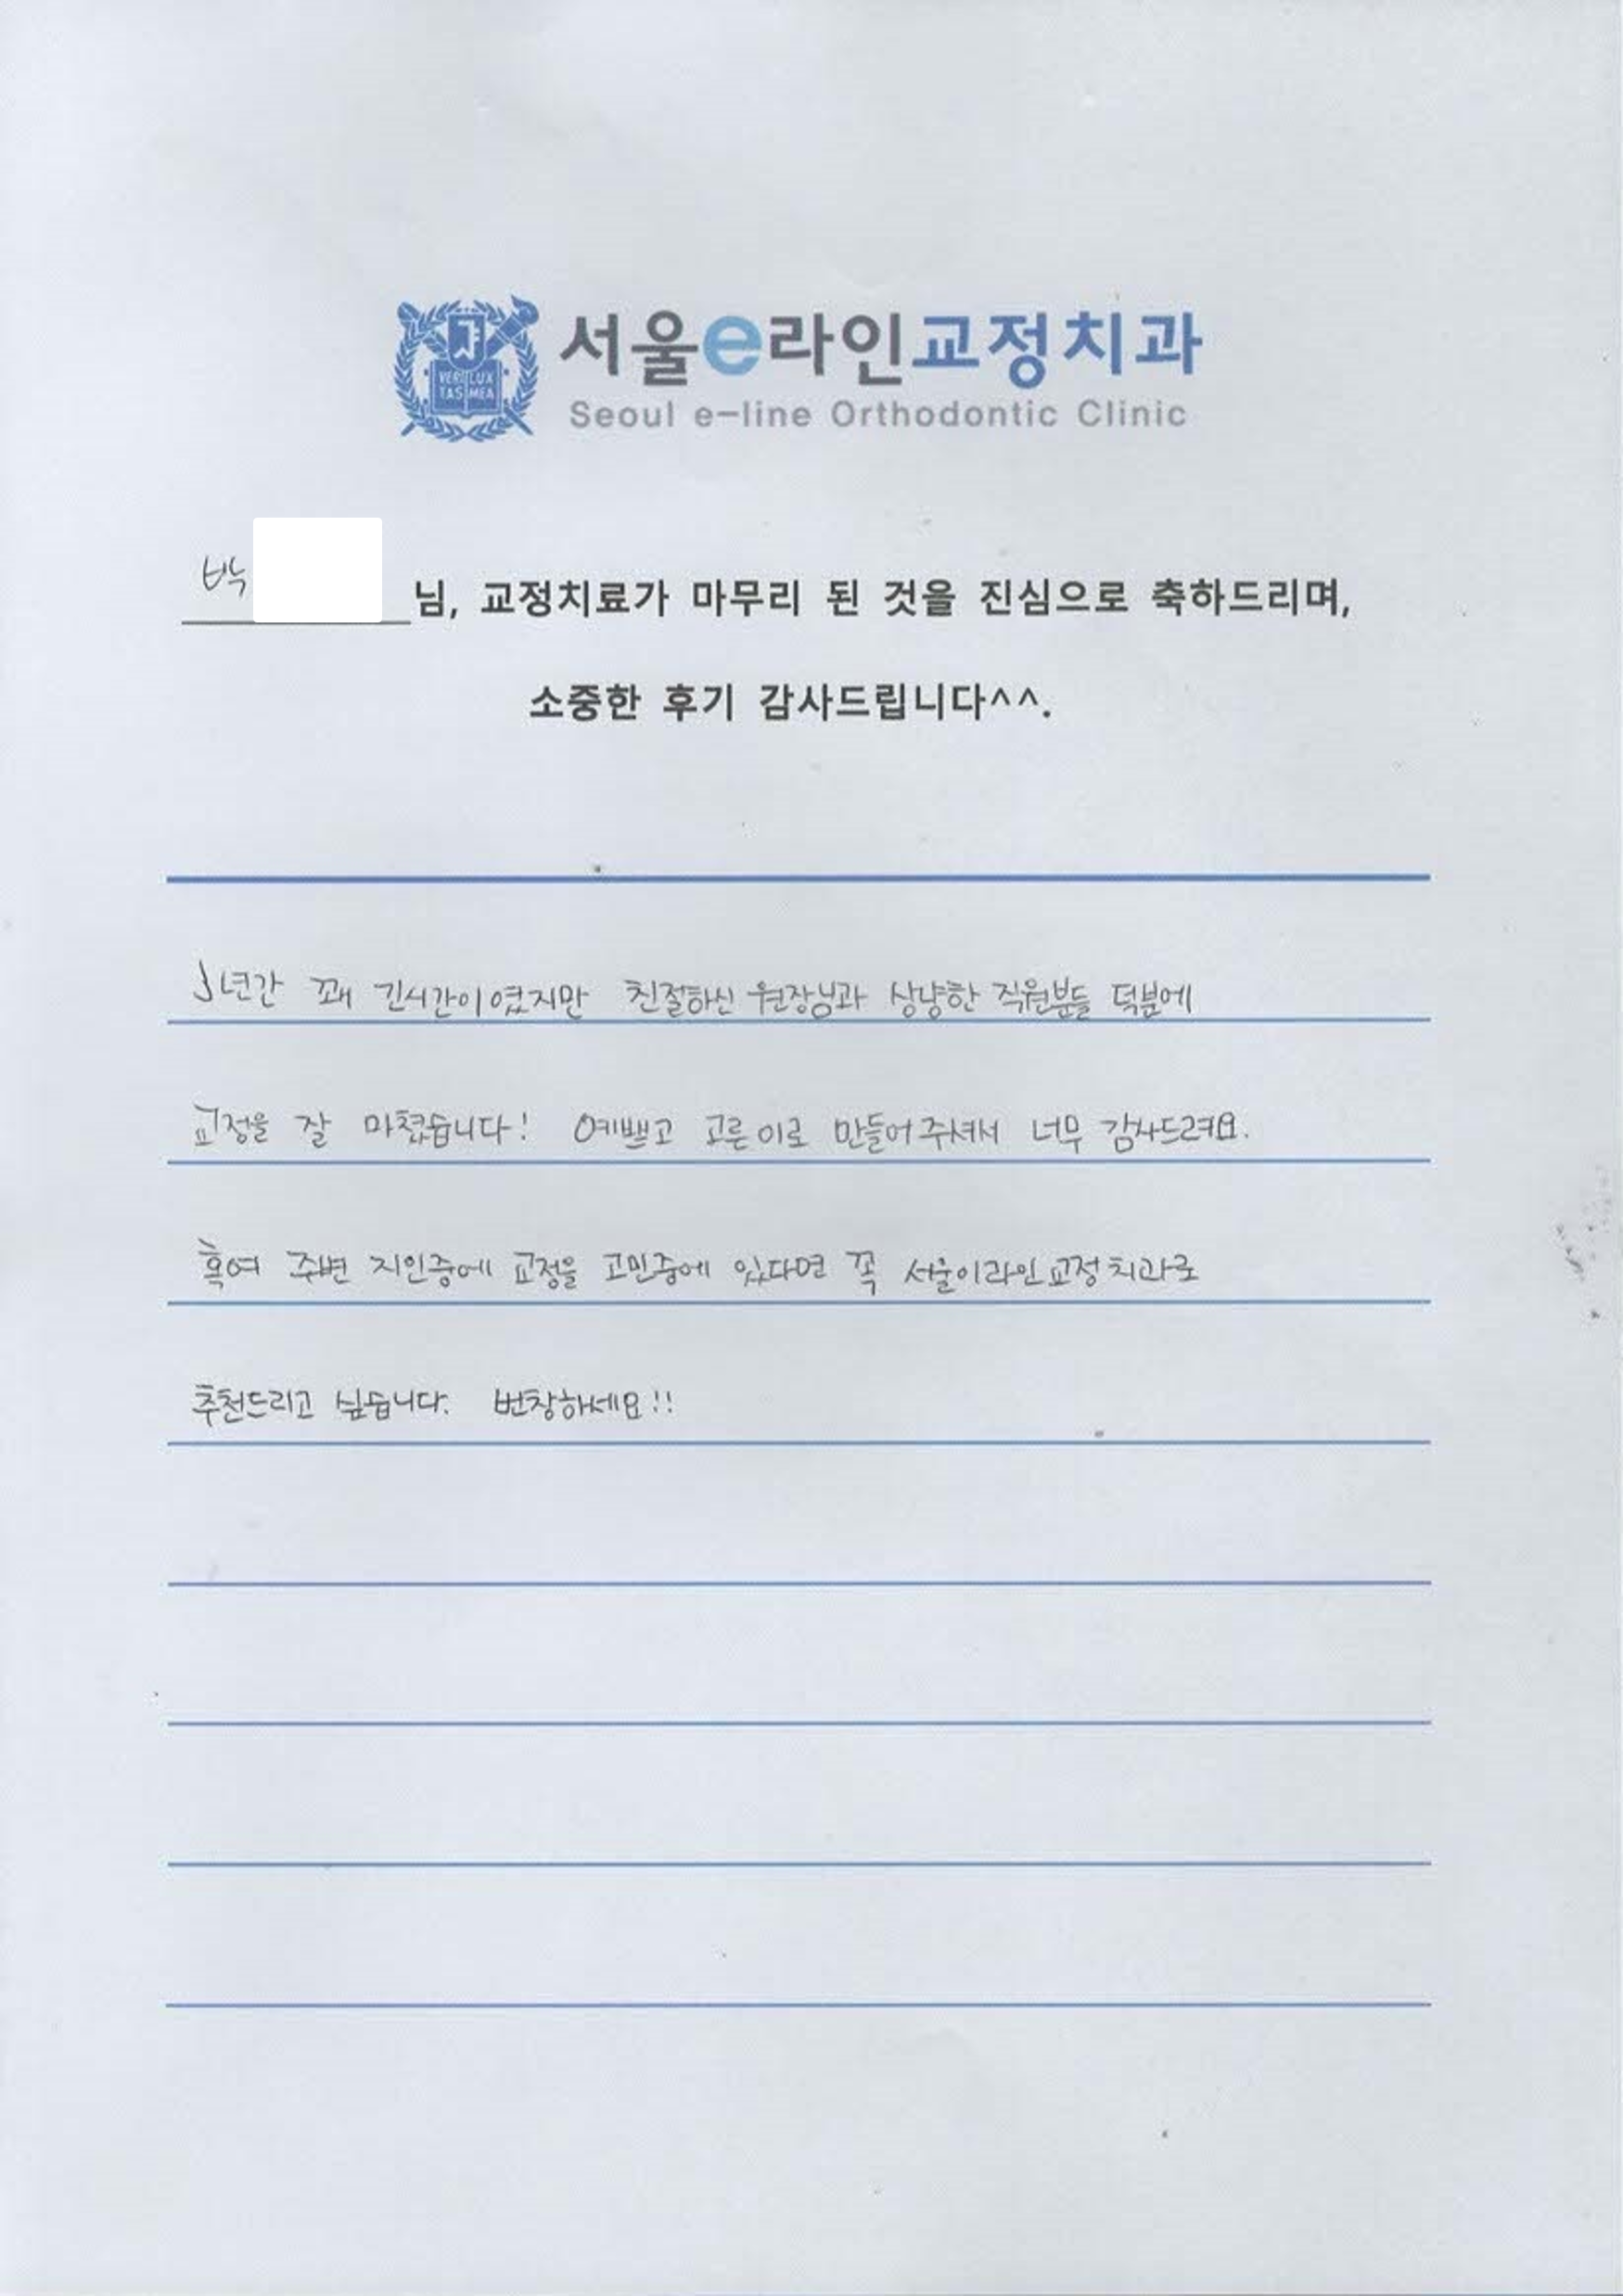 VERI LUX
TAS MEA
서울e라인교정치과
Seoul e-line Orthodontic Clinic
박 님, 교정치료가 마무리 된 것을 진심으로 축하드리며,
소중한 후기 감사드립니다^^.
3년간 꽤 긴시간이였지만 친절하신 원장님과 상냥한 직원분들 덕분에
교정을 잘 마쳤습니다! 예쁘고 고른이로 만들어주셔서 너무 감사드려요.
혹여 주변 지인중에 교정을 고민중에 있다면 꼭 서울이라인교정치과로
추천드리고 싶습니다. 번창하세요!!